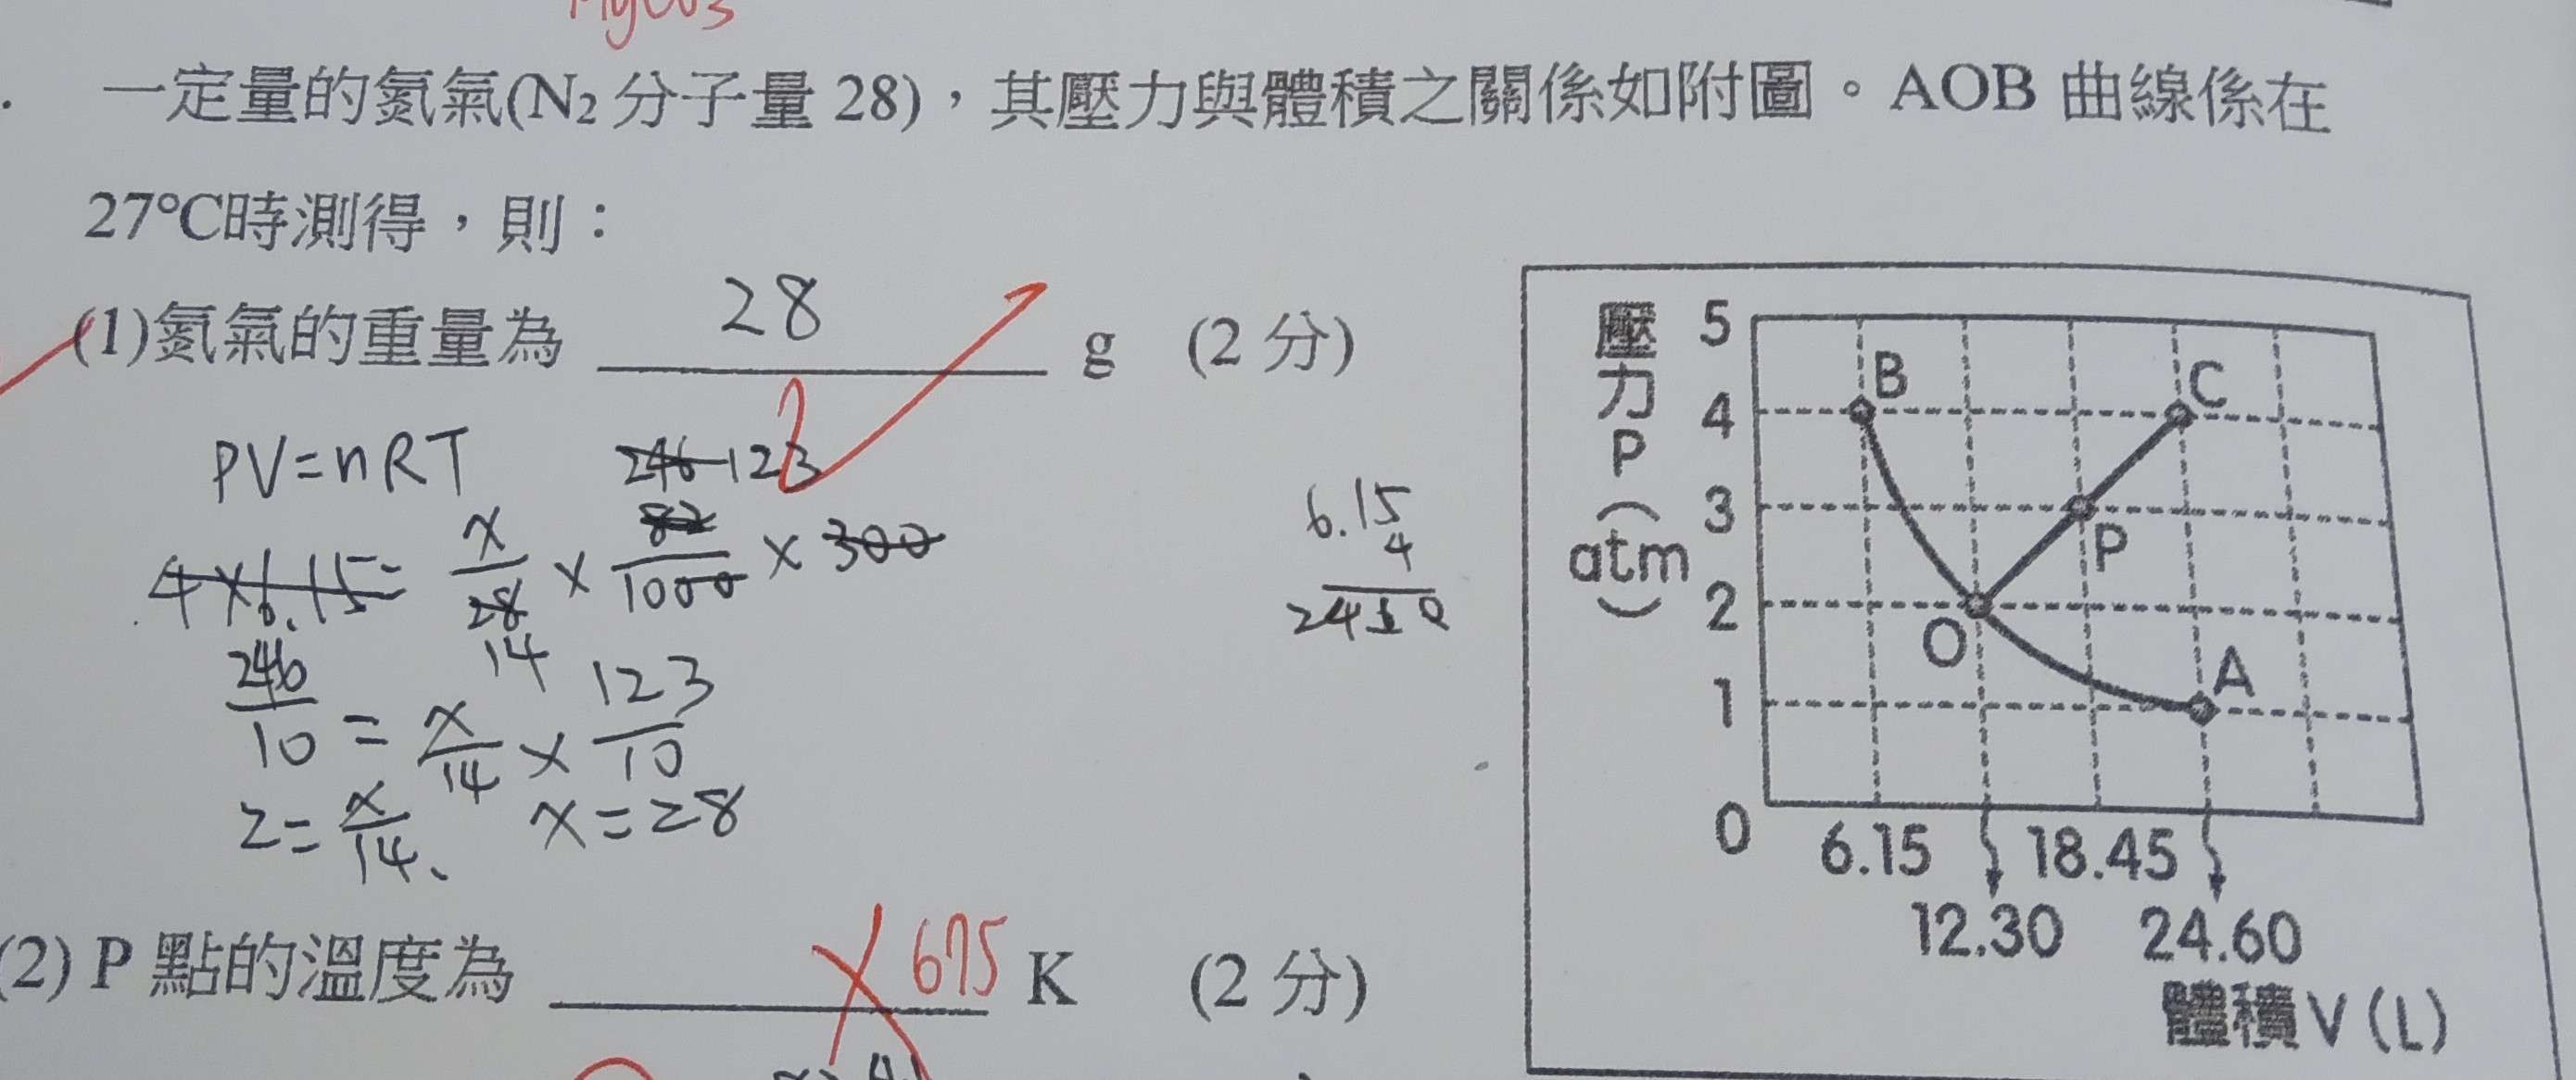 MgCO3
一定量的氮氣(N₂分子量 28)，其壓力與體積之關係如附圖。AOB 曲線係在
27℃時測得，則：
(1)氮氣的重量為 28 g (2 分)
PV=nRT
246 123
4×6.15= x/28 × 82/1000 × 300
14
246/10 = x/14 × 123/10
2= x/14 x=28
6.15
4
24.60
(2) P 點的溫度為 675 K (2 分)
壓力 P (atm)
5
4
3
2
1
0
B
C
P
O
A
6.15
18.45
12.30
24.60
體積 V (L)